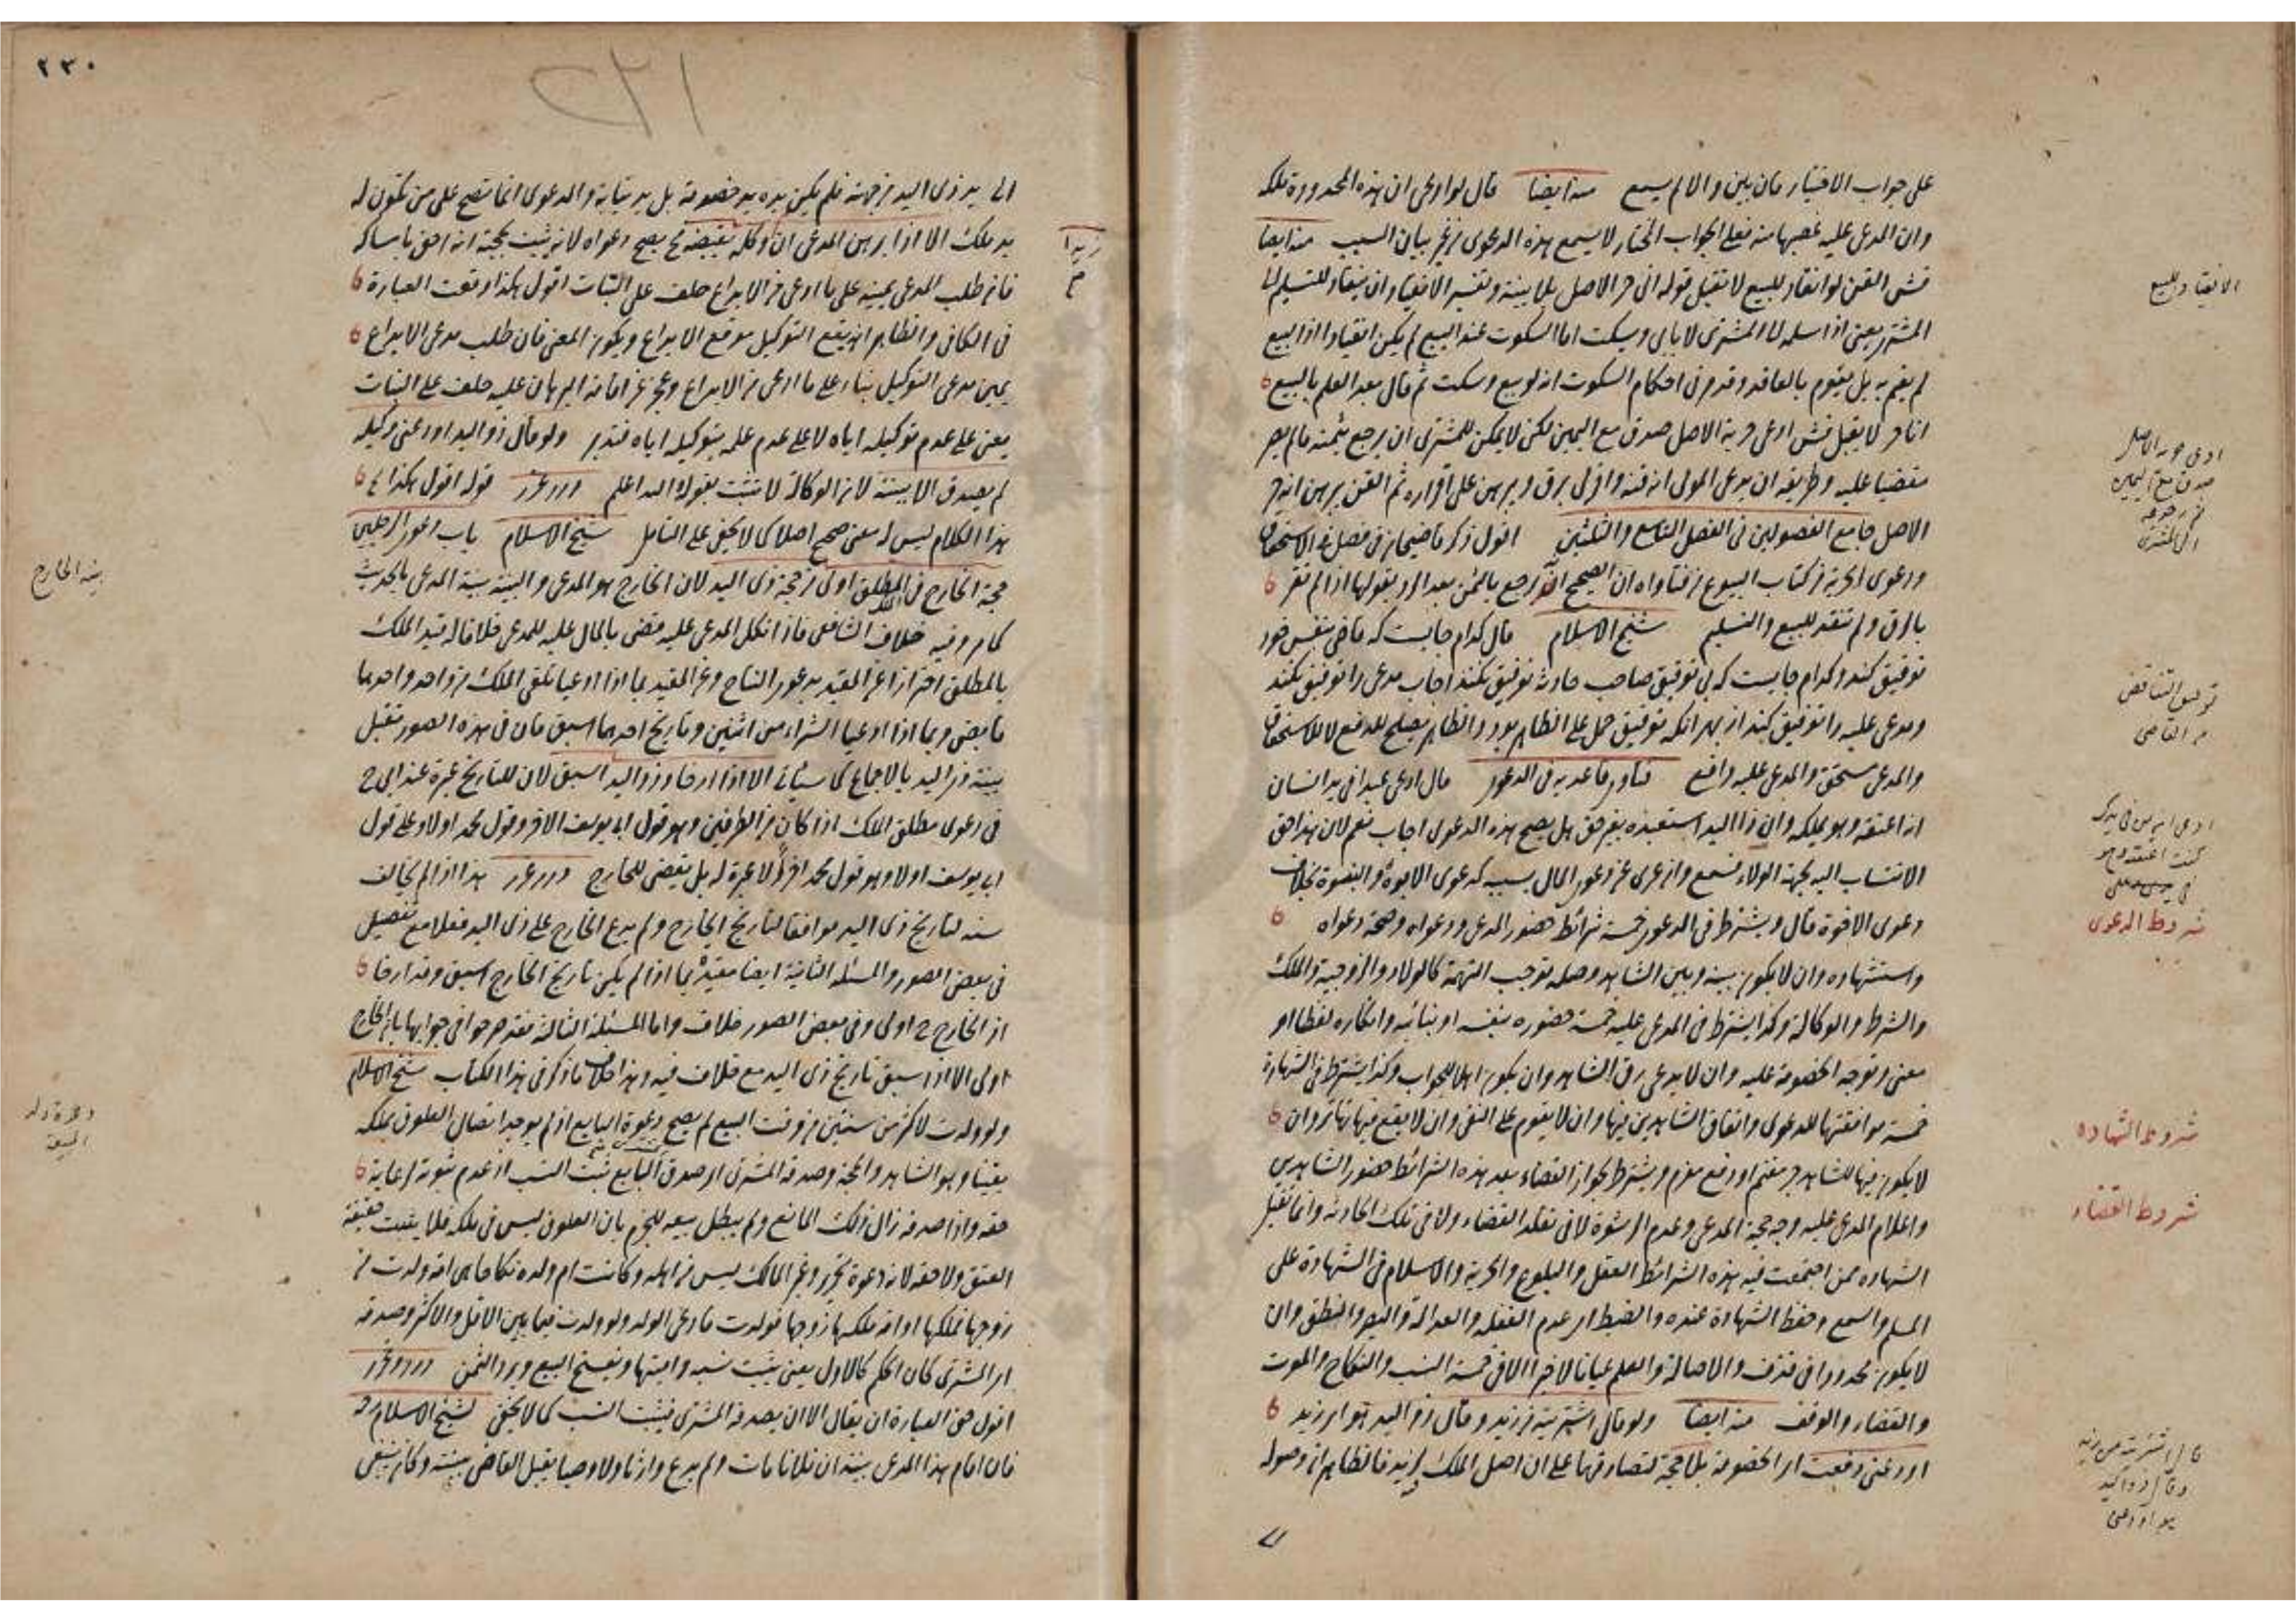 على جواب الاختيار فان بين والا لم يسمع منه ايضا قال لو ادعى ان هذه المحدودة ملكه
وان المدعى عليه غصبها منه فعلى الجواب المختار لا يسمع هذه الدعوى من غير بيان السبب منه ايضا
فش القن لو انقاد للبيع لا تقبل قوله انى حر الاصل بلا بينة وتفسير الانقياد ان ينقاد للتسليم الى
المشترى يعنى اذا سلمه الى المشترى لا يأبى ويسكت اما السكوت عند البيع لم يكن انقيادا اذ البيع
لم يقم به بل يقوم بالعاقد وقد مر فى احكام السكوت انه لو بيع وسكت ثم قال بعد العلم بالبيع
انا حر لا يقبل فش ادعى حرية الاصل صدق مع اليمين لكن لا يمكن للمشترى ان يرجع بثمنه ما لم يصر
مقضيا عليه وطريقه ان يدعى المولى انه قنه واقر لى برق ويبرهن على اقراره ثم القن يبرهن انه حر
الاصل جامع الفصولين فى الفصل التاسع والثلثين اقول ذكر قاضيخان فى فصل فى الاستحقاق
ودعوى الحرية من كتاب البيوع من فتاواه ان الصحيح انه يرجع بالثمن بعد الرد بقولها اذا لم تقر
بالرق ولم تنقد للبيع والتسليم شيخ الاسلام قال كدام جايست كه قاضى بنفس خود
توفيق كند وكدام جايست كه بى توفيق صاحب حادثه توفيق نكند اجاب مدعى را توفيق نكند
ومدعى عليه را توفيق كند از بهر انكه توفيق حمل على الظاهر بود والظاهر يصلح للدفع لا للاستحقاق
والمدعى مستحق والمدعى عليه دافع فتاوى قاعديه فى الدعوى قال ادعى عبدا فى يد انسان
انه اعتقه وهو يملكه وان ذا اليد استعبده بغير حق هل يصح هذه الدعوى اجاب نعم لان هذا حق
الانتساب اليه بجهة الولاء فتسمع وان عرى عن دعوى المال بسببه كدعوى الابوة والبنوة بخلاف
دعوى الاخوة قال ويشترط فى الدعوى خمسة شرائط حضور المدعى ودعواه وصحة دعواه
واستشهاده وان لا يكون بينه وبين الشاهد وصلة توجب التهمة كالولاد والزوجية والملك
والشرط والوكالة وكذا يشترط فى المدعى عليه خمسة حضوره بنفسه او بنائبه وانكاره لفظا او
معنى وتوجه الخصومة عليه وان لا يدعى رق الشاهد وان يكون اهلا للجواب وكذا يشترط فى الشهادة
خمسة موافقتها للدعوى واتفاق الشاهدين فيها وان لا يقوم على النفى وان لا يقع فيها تهاتر وان
لا يكون فيها للشاهد جر مغنم او دفع مغرم ويشترط لجواز القضاء بعد هذه الشرائط حضور الشاهدين
واعلام المدعى عليه وجه حجة المدعى وعدم الرشوة لا فى تقلد القضاء ولا فى تلك الحادثة وانما تقبل
الشهادة ممن اجتمعت فيه هذه الشرائط العقل والبلوغ والحرية والاسلام فى الشهادة على
المسلم والسمع وحفظ الشهادة عنده والضبط اى عدم الغفلة والعدالة والبصر والنطق وان
لا يكون محدودا فى قذف والاصالة والعلم عيانا لا خبرا الا فى خمسة النسب والنكاح والموت
والقضاء والوقف منه ايضا ولو قال اشتريته من زيد وقال ذو اليد هو اى زيد
اودعنى دفعت اى الخصومة بلا حجة لتصادقهما على ان اصل الملك لزيد فالظاهر ان وصوله
الى
الانقياد للبيع
ادعى حرية الاصل
صدق مع اليمين
توفيق التناقض
من القاضى
شروط الدعوى
شروط الشهادة
شروط القضاء
قال اشتريته من زيد
وقال ذو اليد
هو اودعنى
٢٣٠
الى يد ذى اليد من جهته فلم يكن يده يد خصومة بل يد نيابة والدعوى انما تصح على من تكون له
يد ملك الا اذا برهن المدعى ان وكله بقبضه فح يصح دعواه لانه يثبت بحجته انه احق بامساكه
فان طلب المدعى يمينه على ما ادعى من الايداع حلف على البتات اقول هكذا وقعت العبارة
فى الكافى والظاهر ان يقع التوكيل موقع الايداع ويكون المعنى فان طلب مدعى الايداع
يمين مدعى التوكيل بناء على ما ادعى من الايداع وعجز عن اقامة البرهان عليه حلف على البتات
يعنى على عدم توكيله اياه لا على عدم علمه بتوكيله اياه فتدبر ولو قال ذو اليد اودعنى وكيله
لم يصدق الا ببينة لان الوكالة لا تثبت بقوله والله اعلم درر غرر قوله اقول هكذا الخ
هذا الكلام ليس له معنى صحيح اصلا كما لا يخفى على المتأمل شيخ الاسلام باب دعوى الرجلين
حجة الخارج فى الملك المطلق اولى من حجة ذى اليد لان الخارج هو المدعى والبينة بينة المدعى بالحديث
كما مر وفيه خلاف الشافعى فاذا نكل المدعى عليه قضى بالمال عليه للمدعى خلافا له قيد الملك
بالمطلق احترازا عن المقيد بدعوى النتاج وعن المقيد بما اذا ادعيا تلقى الملك من واحد واحدهما
قابض وبما اذا ادعيا الشراء من اثنين وتاريخ احدهما اسبق فان فى هذه الصور تقبل
بينة ذى اليد بالاجماع كما سيأتى الا اذا ارخا وذو اليد اسبق لان للتاريخ عبرة عند ابى ح
فى دعوى مطلق الملك اذا كان من الطرفين وهو قول ابى يوسف الآخر وقول محمد اولا وعلى قول
ابى يوسف اولا وهو قول محمد آخرا لا عبرة له بل يقضى للخارج درر غرر هذا اذا لم يخالف
سنة لتاريخ ذى اليد موافقا لتاريخ الخارج ولم يدع الخارج على ذى اليد فعلا مع تفصيل
فى بعض الصور والمسئلة الثانية ايضا مقيدة بما اذا لم يكن تاريخ الخارج اسبق وقد ارخا
اذ الخارج ح اولى وفى بعض الصور خلاف واما المسئلة الثالثة فقد صرحوا فى جوابها بان الخارج
اولى الا اذا سبق تاريخ ذى اليد مع خلاف فيه وهذا خلاف ما ذكر فى هذا الكتاب شيخ الاسلام
ولو ولدت لاكثر من سنتين من وقت البيع لم يصح دعوة البايع اذ لم يوجد اتصال العلوق بملكه
يقينا وهو الشاهد والحجة وصدقه المشترى اى صدق البايع ثبت النسب اذ عدم ثبوته لرعاية
حقه واذا صدقه زال ذلك المانع ولم يبطل بيعه للجزم بان العلوق ليس فى ملكه فلا يثبت حقيقة
العتق ولا حقه لانه دعوة تحرير وغير المالك ليس من اهله وكانت ام ولده نكاحا هى امة ولدت من
زوجها فملكها او امة ملكها زوجها فولدت فادعى الولد ولو ولدت فيما بين الاقل والاكثر وصدقه
اى المشترى كان الحكم كالاول يعنى يثبت نسبه واميتها ويفسخ البيع ويرد الثمن درر وغرر
اقول حق العبارة ان يقال الا ان يصدقه المشترى فيثبت النسب كما لا يخفى لشيخ الاسلام
فان اقام هذا المدعى بينة ان فلانا مات ولم يدع وارثا ولا وصيا يقبل القاضى بينته وكان ينبغى
بينة الخارج